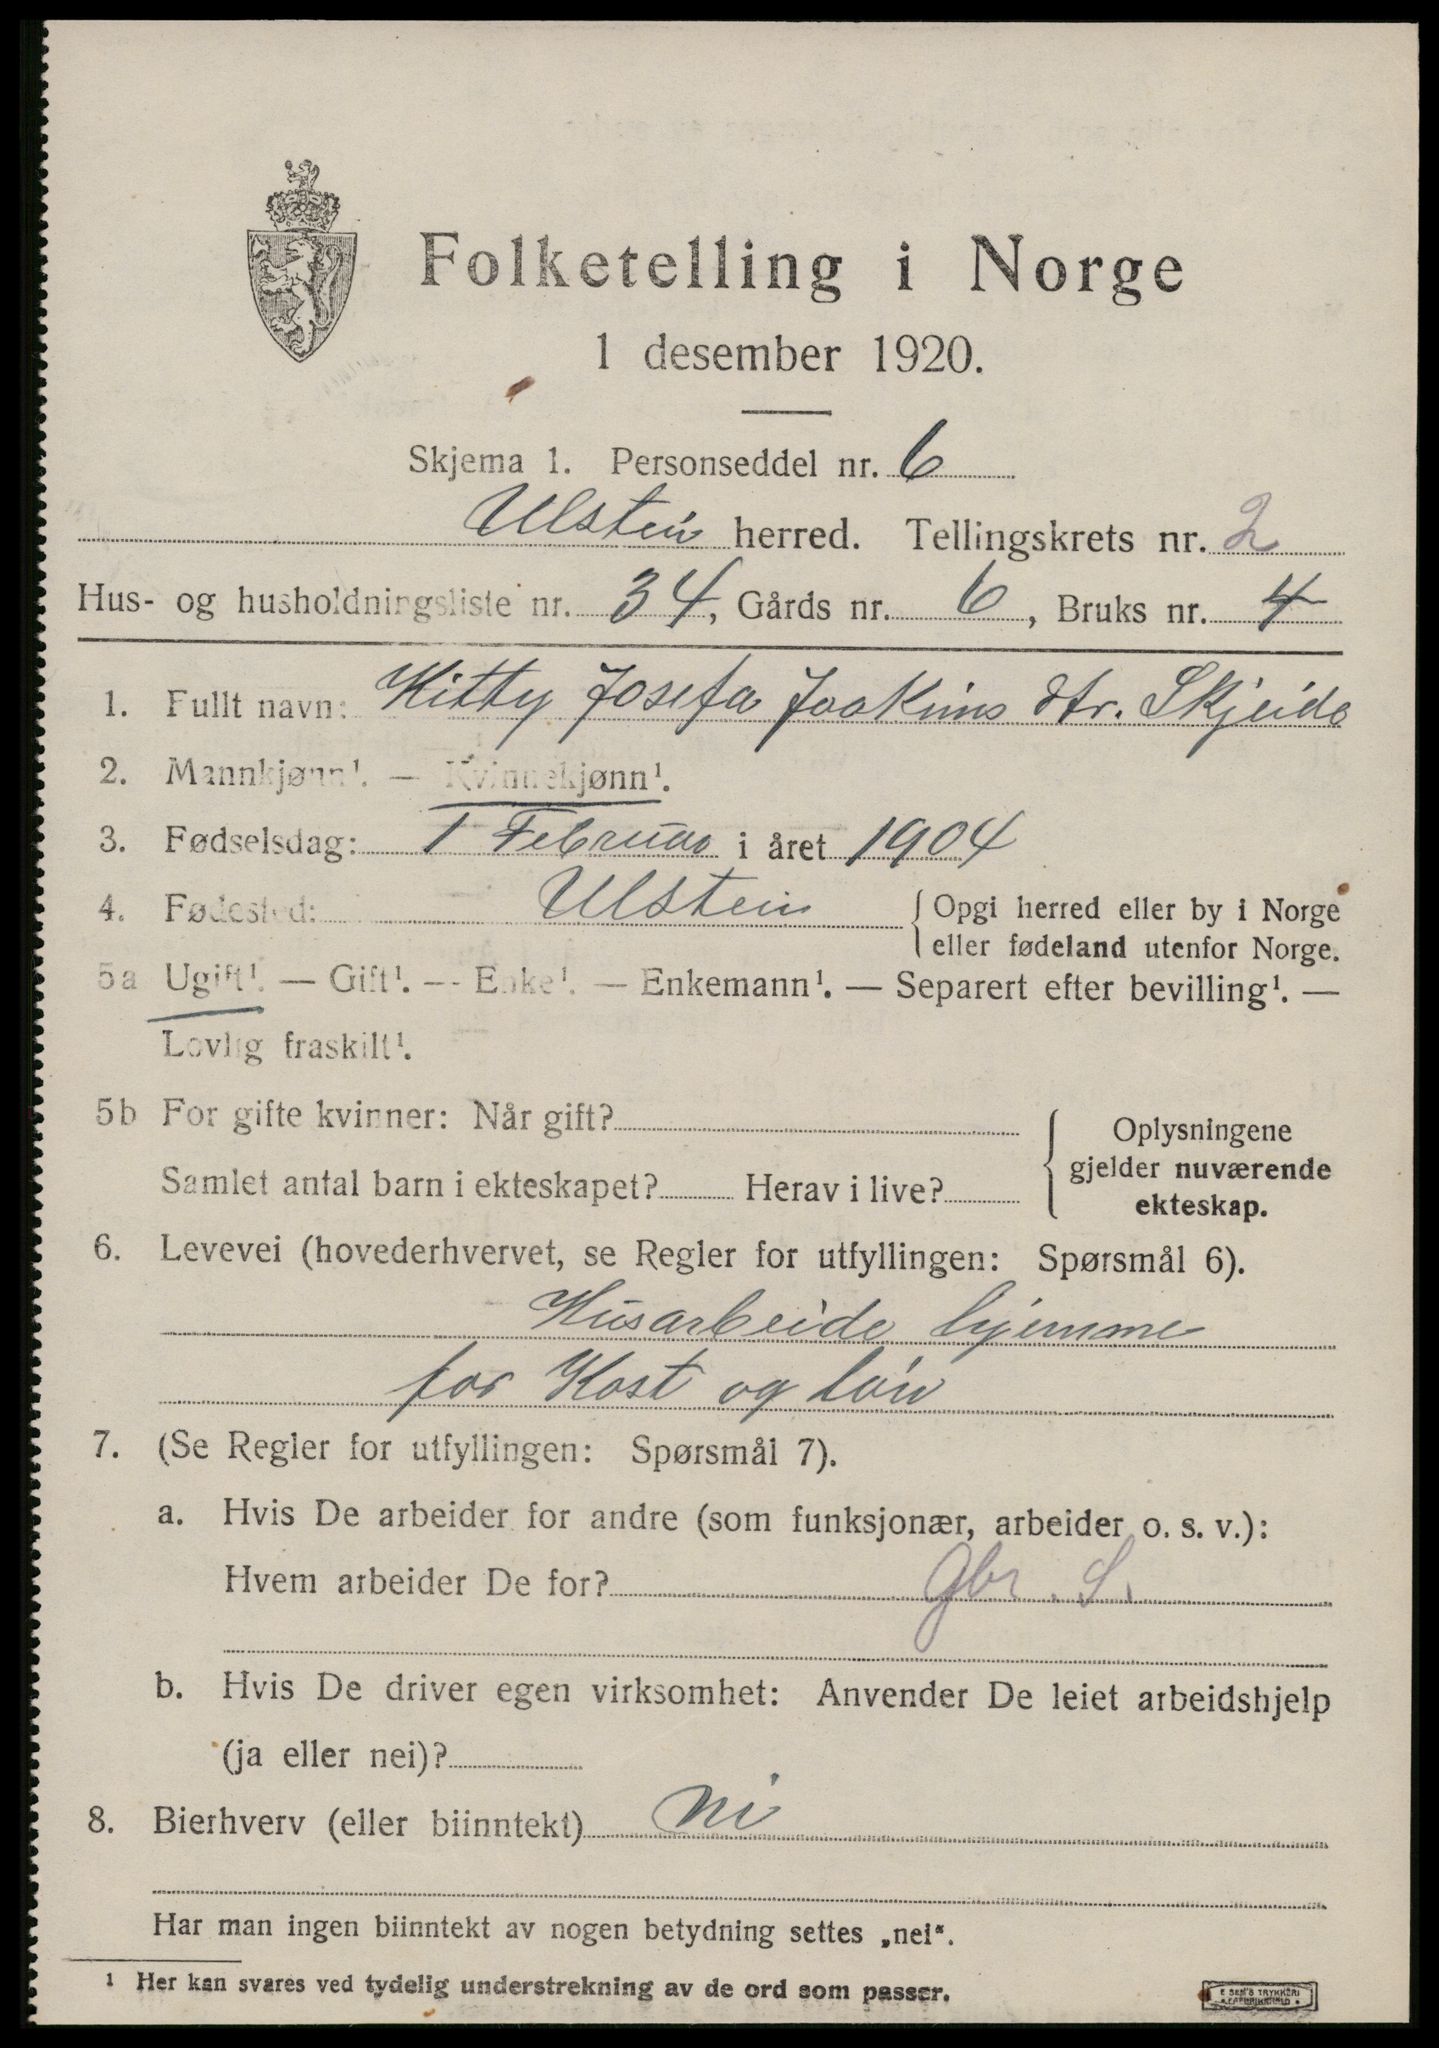 Folketelling i Norge
1 desember 1920.
Skjema 1. Personseddel nr. 6
Ulstein herred. Tellingskrets nr. 2
Hus- og husholdningsliste nr. 34, Gårds nr. 6, Bruks nr. 4
1. Fullt navn: Kitty Josefa Joakims dtr. Skjeide
2. Mannkjønn¹. — Kvinnekjønn¹.
3. Fødselsdag: 1 Februar i året 1904
4. Fødested: Ulstein { Opgi herred eller by i Norge
eller fødeland utenfor Norge.
5a Ugift¹. — Gift¹. — Enke¹. — Enkemann¹. — Separert efter bevilling¹. —
Lovlig fraskilt¹.
5b For gifte kvinner: Når gift?
Samlet antal barn i ekteskapet? Herav i live?
Oplysningene
gjelder nuværende
ekteskap.
6. Levevei (hovederhvervet, se Regler for utfyllingen: Spørsmål 6).
Husarbeide hjemme
for Kost og løn
7. (Se Regler for utfyllingen: Spørsmål 7).
a. Hvis De arbeider for andre (som funksjonær, arbeider o. s. v.):
Hvem arbeider De for? Gbr. S.
b. Hvis De driver egen virksomhet: Anvender De leiet arbeidshjelp
(ja eller nei)?
8. Bierhverv (eller biinntekt) ni
Har man ingen biinntekt av nogen betydning settes „nei“.
¹ Her kan svares ved tydelig understrekning av de ord som passer.